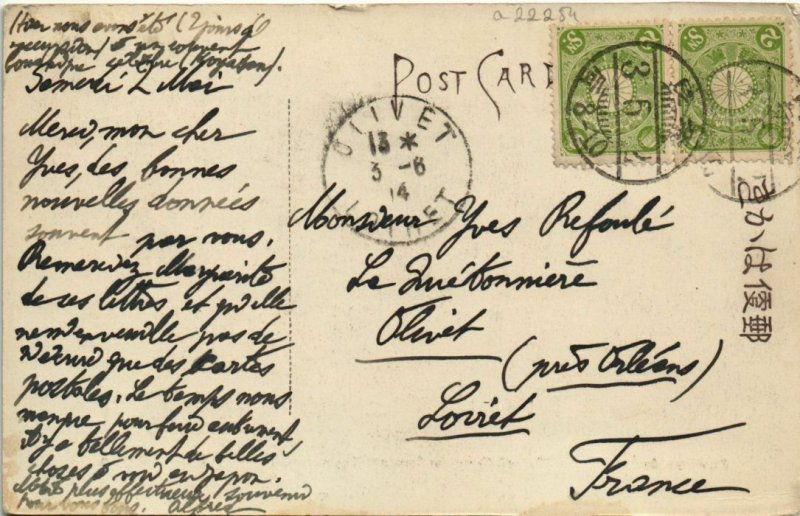 a 22254
Hier nous avons été (2 jours d'
excursion) à un couvent
bouddhique
Samedi 2 Mai
Merci, mon cher
Yves, des bonnes
nouvelles données
souvent par vous.
Remerciez Marguerite
de ses lettres et qu'elle
ne m'en veuille pas de
n'écrire que des cartes
postales. Le temps nous
manque pour faire autrement
il y a tellement de belles
choses à voir au Japon.
plus affectueux souvenir
pour tous.
POST CARD
OLIVET
13 *
3 -6
14
LOIRET
Monsieur Yves Refoulé
La Quétonnière
Olivet
(près Orléans)
Loiret
France
2 Sn
2 Sn
3. 5.
郵便はかき